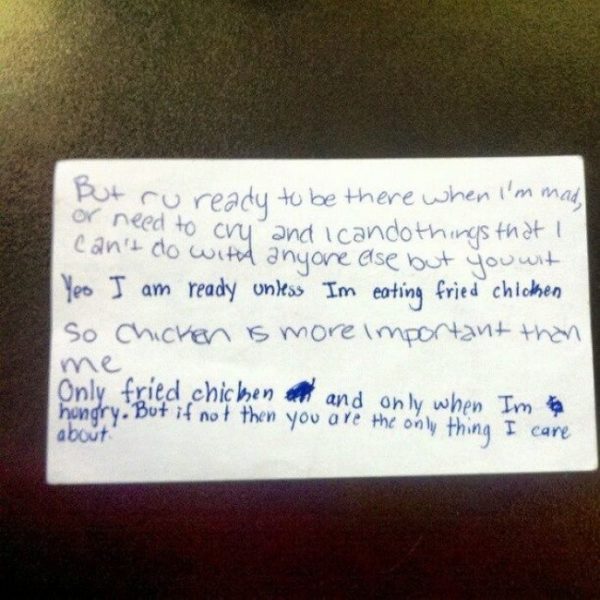 But r u ready to be there when I'm mad,
or need to cry and i can do things that I
can't do with anyone else but you wit
Yes I am ready unless Im eating fried chicken
So Chicken is more important than
me
Only fried chicken and only when Im
hungry. But if not then you are the only thing I care
about.